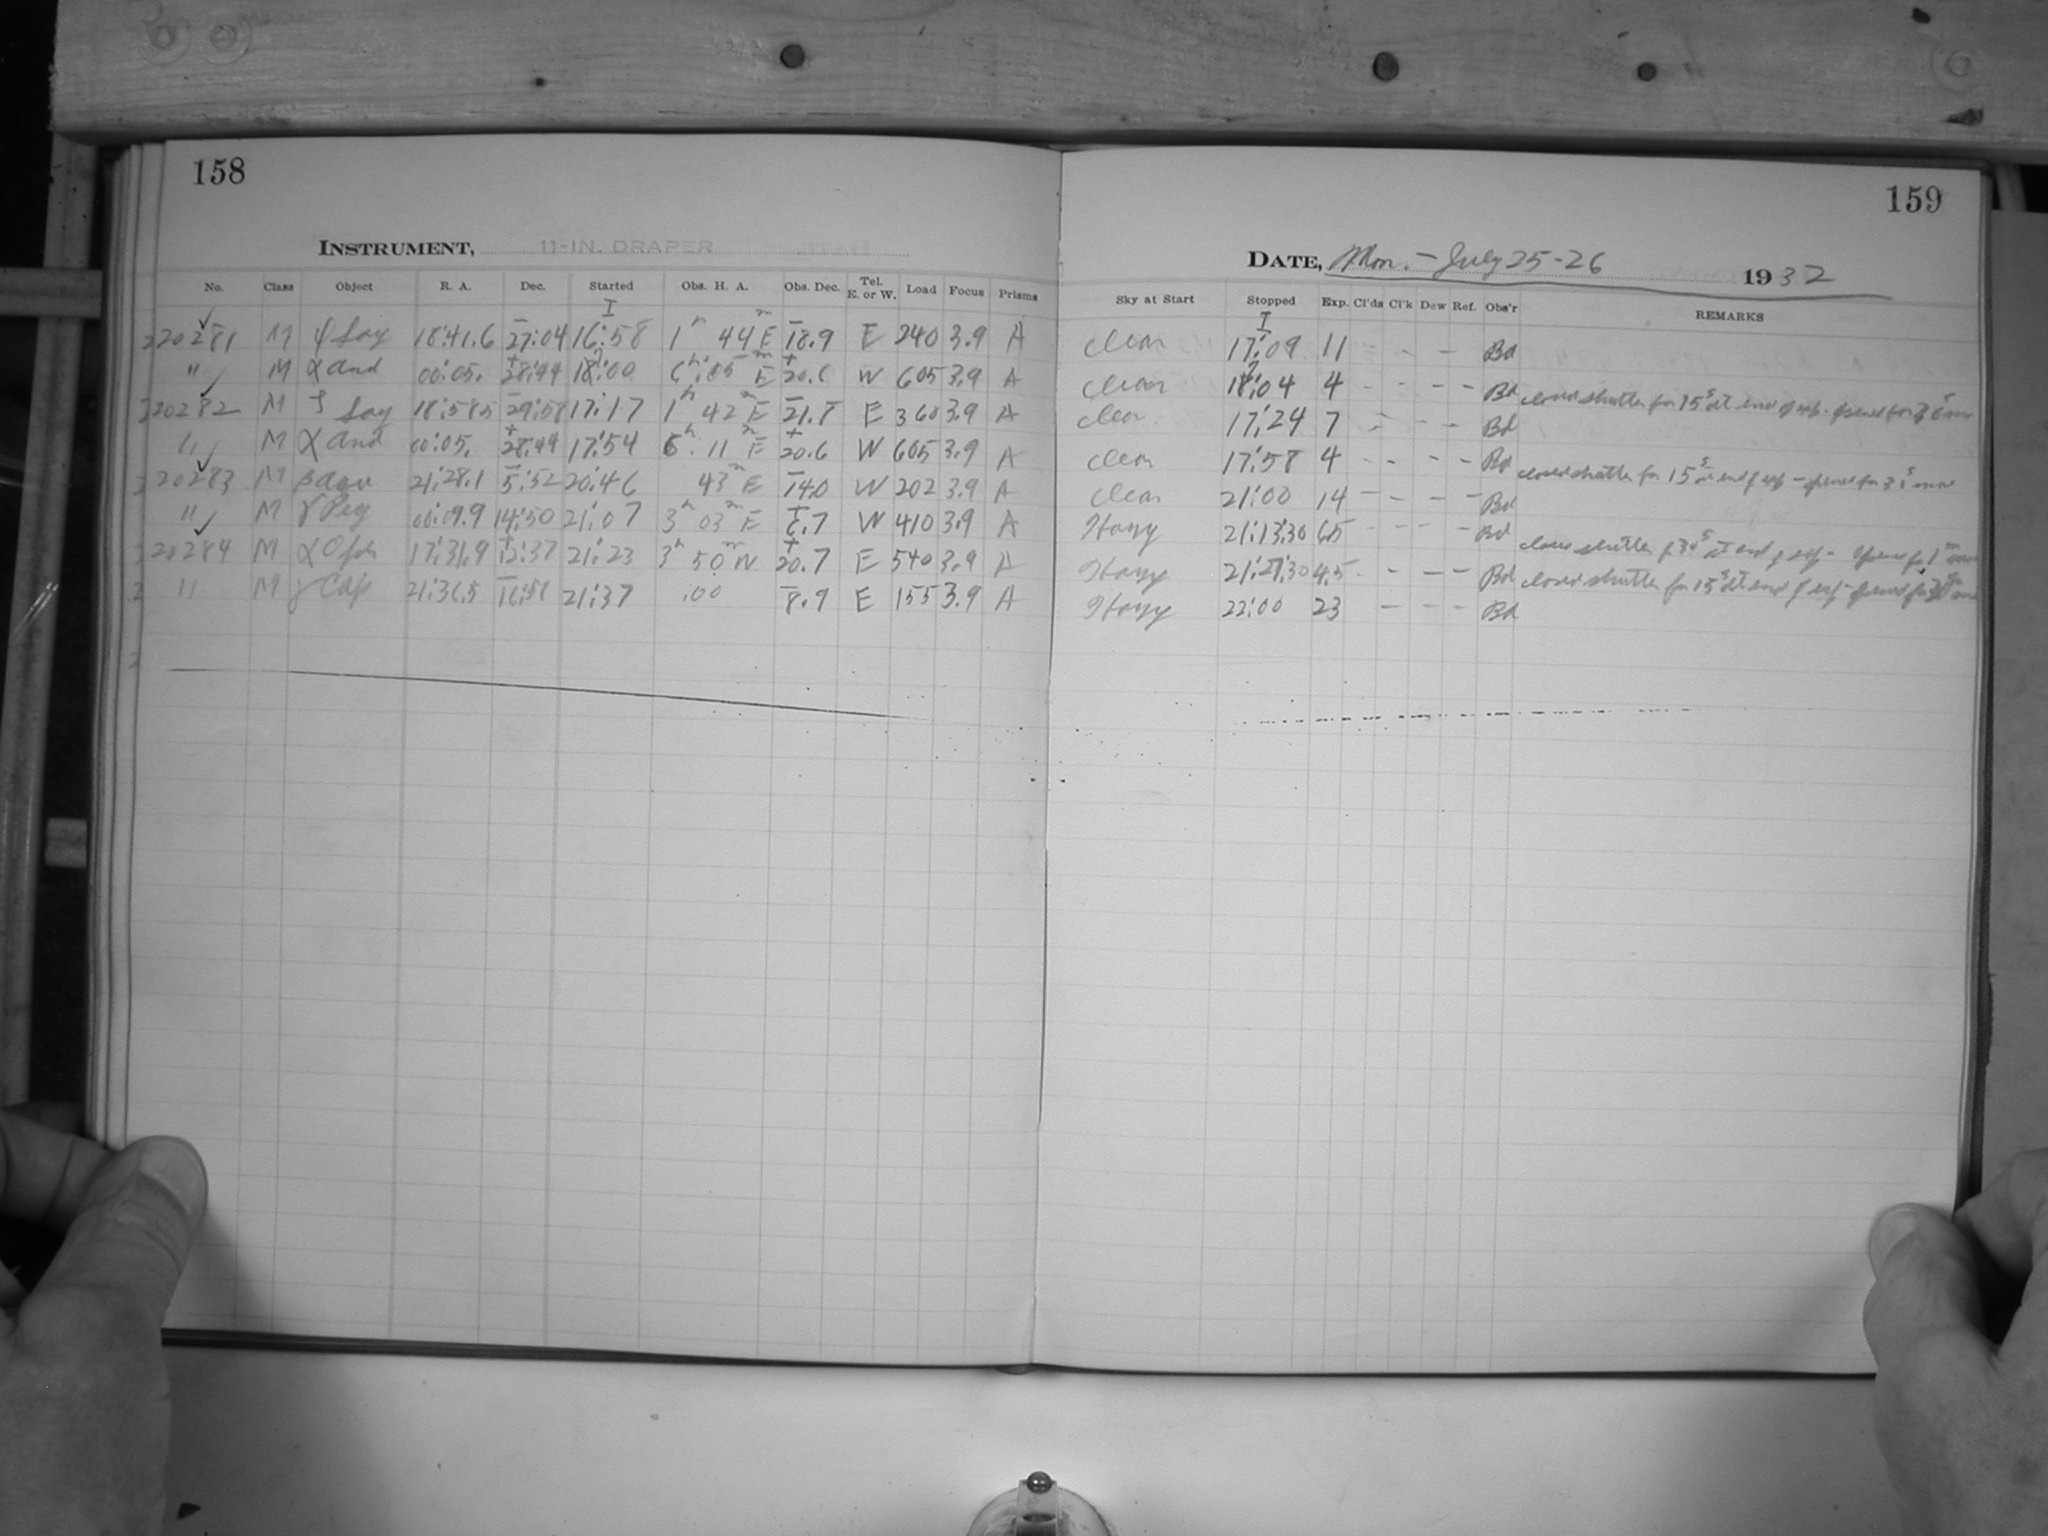 158
INSTRUMENT, 11-IN. DRAPER
No. Class Object R. A. Dec. Started Obs. H. A. Obs. Dec. Tel. E. or W. Load Focus Prisms
I
20281 M φ Sag 18:41.6 −27:04 16:58 1h 44m E −18.9 E 240 3.9 A
" M α And 00:05. +28:44 18:00 6h:05m E +20.6 W 605 3.9 A
20282 M ζ Sag 18:58.5 −29:58 17:17 1h 42m E −21.8 E 360 3.9 A
" M α And 00:05. +28:44 17:54 6h. 11m E +20.6 W 605 3.9 A
20283 M β Aqu 21:28.1 −5:52 20:46 43m E −14.0 W 202 3.9 A
" M γ Peg 00:09.9 14:50 21:07 3h 03m E +6.7 W 410 3.9 A
20284 M α Oph 17:31.9 +12:37 21:23 3h 50m W +20.7 E 540 3.9 A
" M γ Cap 21:36.5 −16:56 21:37 :00 −8.9 E 155 3.9 A
159
DATE, Mon. - July 25-26 1932
Sky at Start Stopped Exp. Cl'ds Cl'k Dew Ref. Obs'r REMARKS
I
Clear 17:09 11 - - - Bd
Clear 18:04 4 - - - Bd closed shutter for 15s at end of exp. opened for
Clear 17:24 7 - - - Bd
Clear 17:58 4 - - - - Bd closed shutter for 15s at end of exp - opened for more
Clear 21:00 14 - - - - Bd
Hazy 21:13:30 6.5 - - - - Bd close shutter f 30s at end of exp - opened for 1m more
Hazy 21:27:30 4.5 - - - - Bd closed shutter for 15s at end of exp - opened for
Hazy 22:00 23 - - - Bd